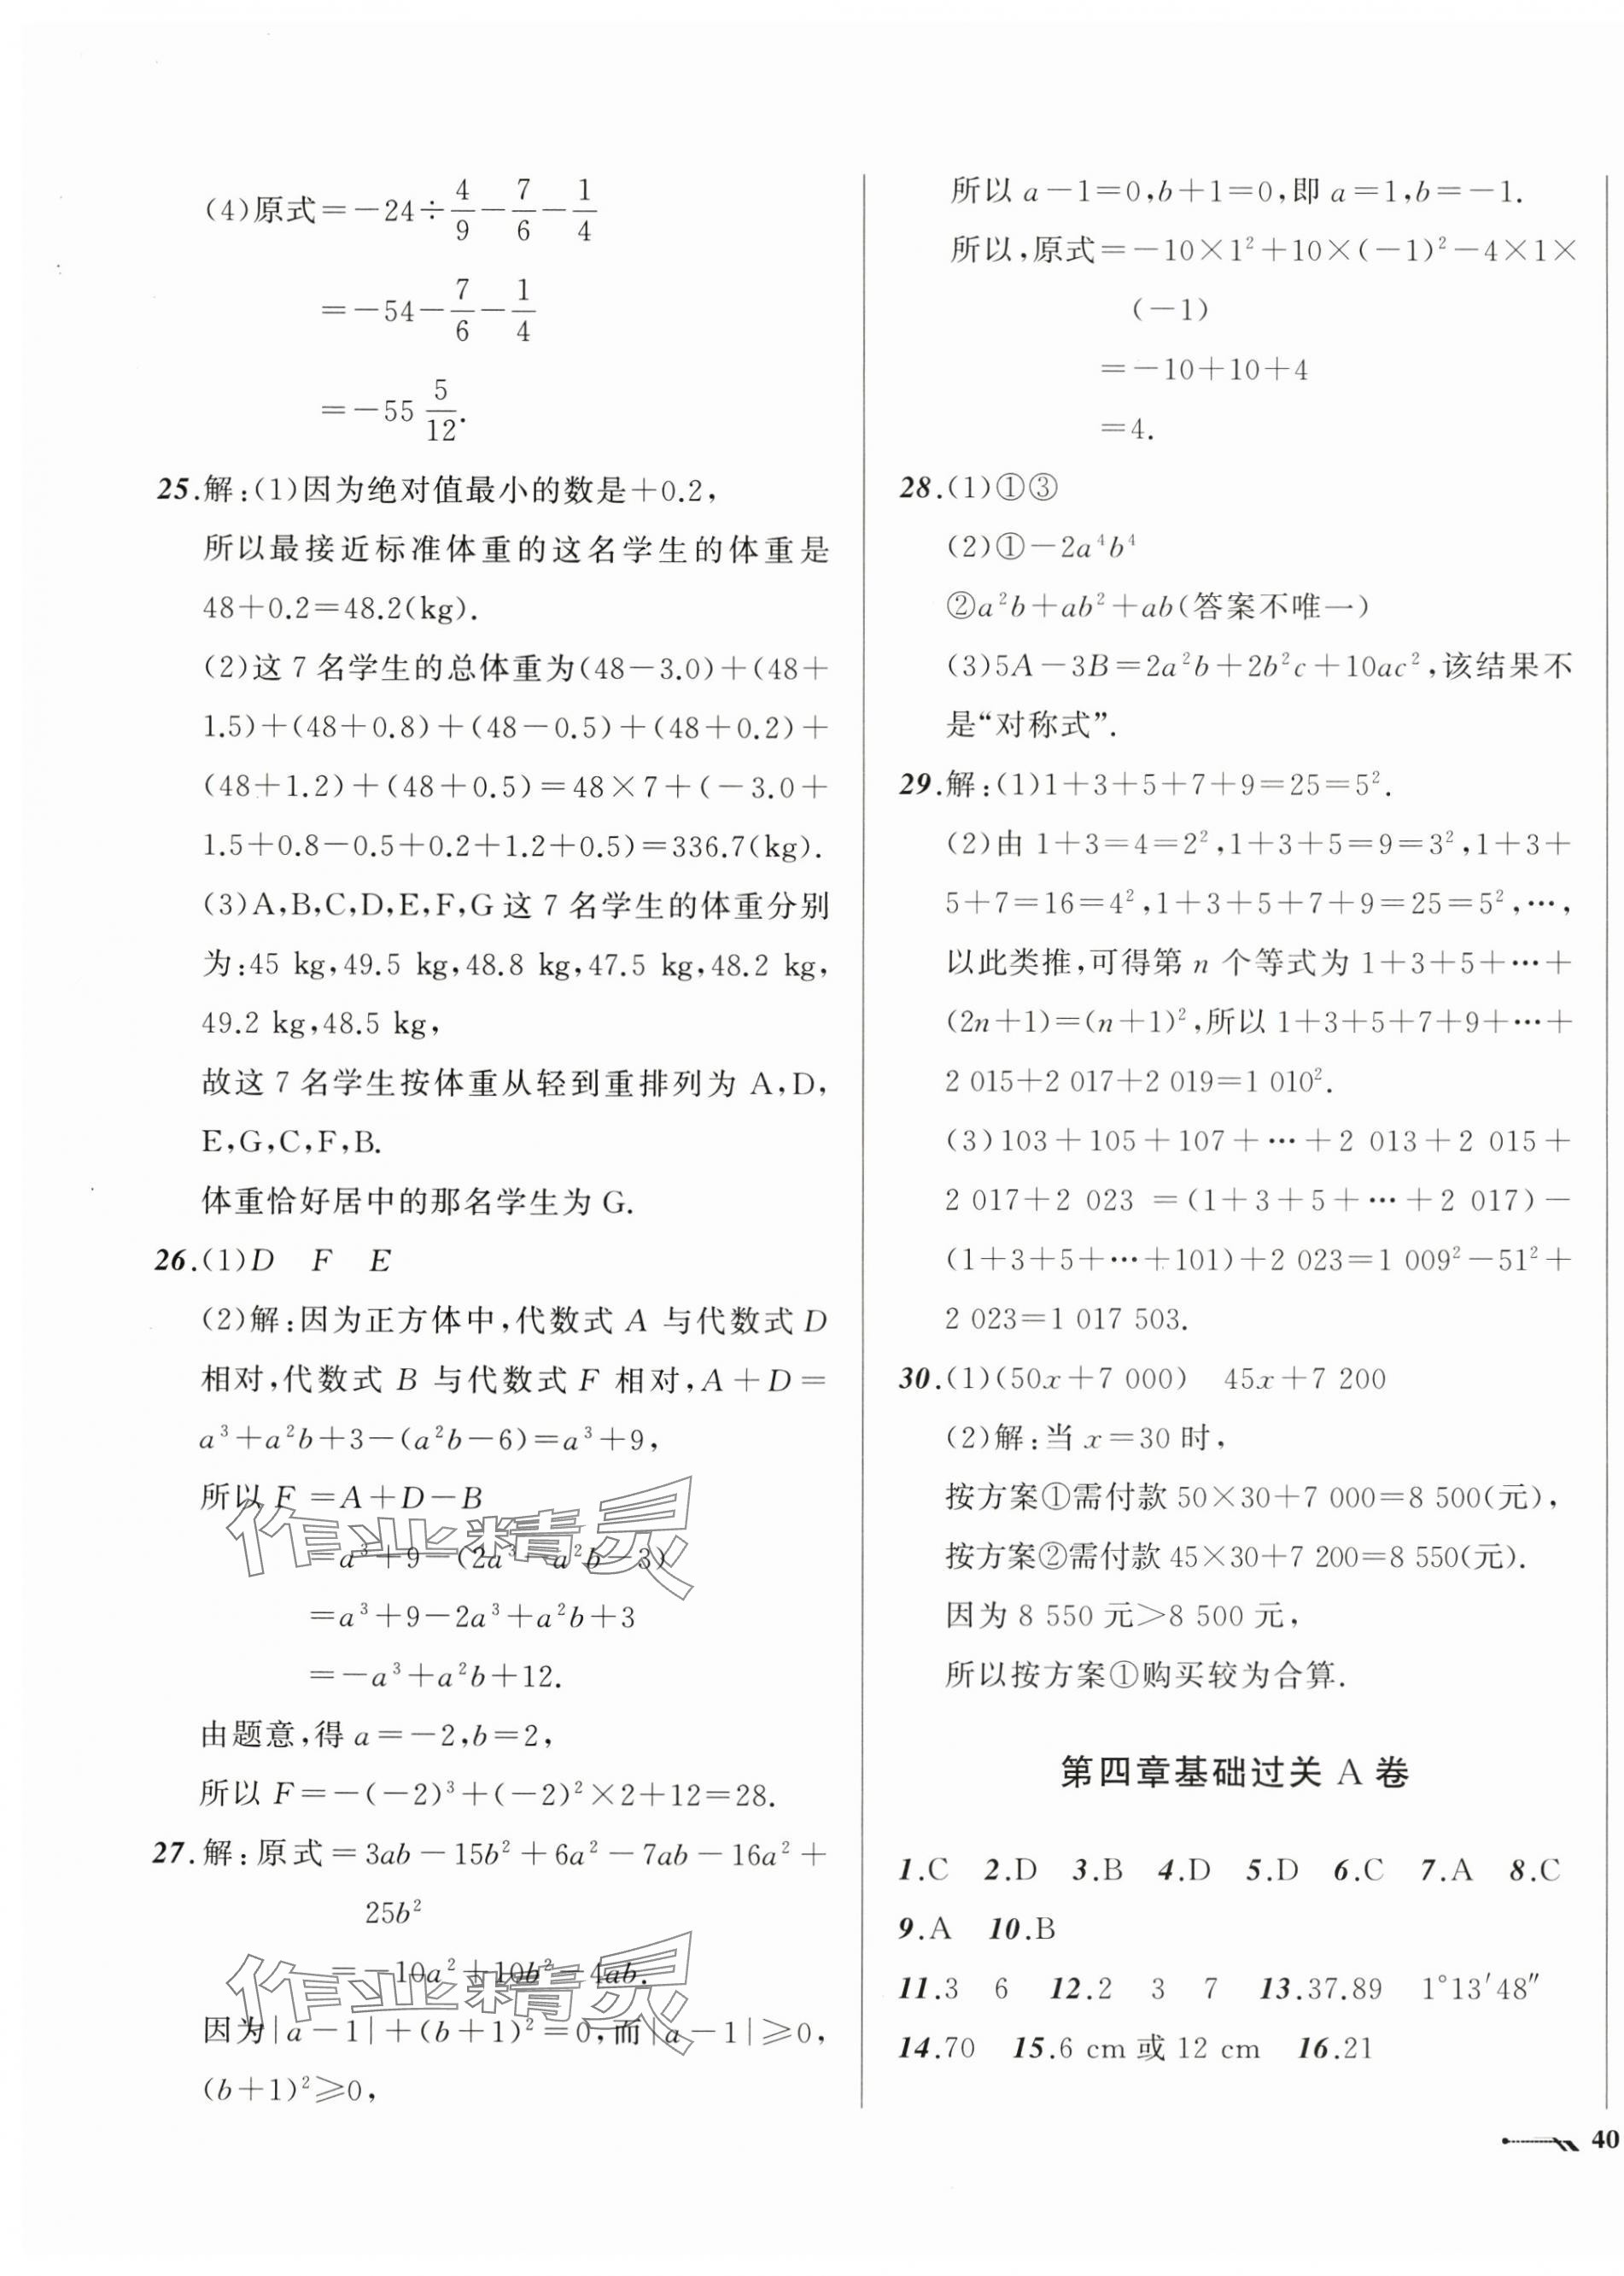 (4)原式=-24÷4/9-7/6-1/4
=-54-7/6-1/4
=-55 5/12.
25.解:(1)因为绝对值最小的数是+0.2,
所以最接近标准体重的这名学生的体重是
48+0.2=48.2(kg).
(2)这 7 名学生的总体重为(48-3.0)+(48+
1.5)+(48+0.8)+(48-0.5)+(48+0.2)+
(48+1.2)+(48+0.5)=48×7+(-3.0+
1.5+0.8-0.5+0.2+1.2+0.5)=336.7(kg).
(3)A,B,C,D,E,F,G这 7 名学生的体重分别
为:45 kg,49.5 kg,48.8 kg,47.5 kg,48.2 kg,
49.2 kg,48.5 kg,
故这 7 名学生按体重从轻到重排列为 A,D,
E,G,C,F,B.
体重恰好居中的那名学生为 G.
26.(1)D F E
(2)解:因为正方体中,代数式 A 与代数式 D
相对,代数式 B 与代数式 F 相对,A+D=
a³+a²b+3-(a²b-6)=a³+9,
所以 F =A+D-B
=a³+9-(2a³-a²b-3)
=a³+9-2a³+a²b+3
=-a³+a²b+12.
由题意,得 a=-2,b=2,
所以 F=-(-2)³+(-2)²×2+12=28.
27.解:原式=3ab-15b²+6a²-7ab-16a²+
25b²
=-10a²+10b²-4ab.
因为|a-1|+(b+1)²=0,而|a-1|≥0,
(b+1)²≥0,
作业精灵
作业精灵
所以 a-1=0,b+1=0,即 a=1,b=-1.
所以,原式=-10×1²+10×(-1)²-4×1×
(-1)
=-10+10+4
=4.
28.(1)①③
(2)①-2a⁴b⁴
②a²b+ab²+ab(答案不唯一)
(3)5A-3B=2a²b+2b²c+10ac²,该结果不
是“对称式”.
29.解:(1)1+3+5+7+9=25=5².
(2)由 1+3=4=2²,1+3+5=9=3²,1+3+
5+7=16=4²,1+3+5+7+9=25=5²,…,
以此类推,可得第 n 个等式为 1+3+5+…+
(2n+1)=(n+1)²,所以 1+3+5+7+9+…+
2 015+2 017+2 019=1 010².
(3)103+105+107+…+2 013+2 015+
2 017+2 023 =(1+3+5+…+2 017)-
(1+3+5+…+101)+2 023=1 009²-51²+
2 023=1 017 503.
30.(1)(50x+7 000) 45x+7 200
(2)解:当 x=30 时,
按方案①需付款 50×30+7 000=8 500(元),
按方案②需付款 45×30+7 200=8 550(元).
因为 8 550 元>8 500 元,
所以按方案①购买较为合算.
第四章基础过关 A 卷
1.C 2.D 3.B 4.D 5.D 6.C 7.A 8.C
9.A 10.B
11.3 6 12.2 3 7 13.37.89 1°13′48″
14.70 15.6 cm 或 12 cm 16.21
40